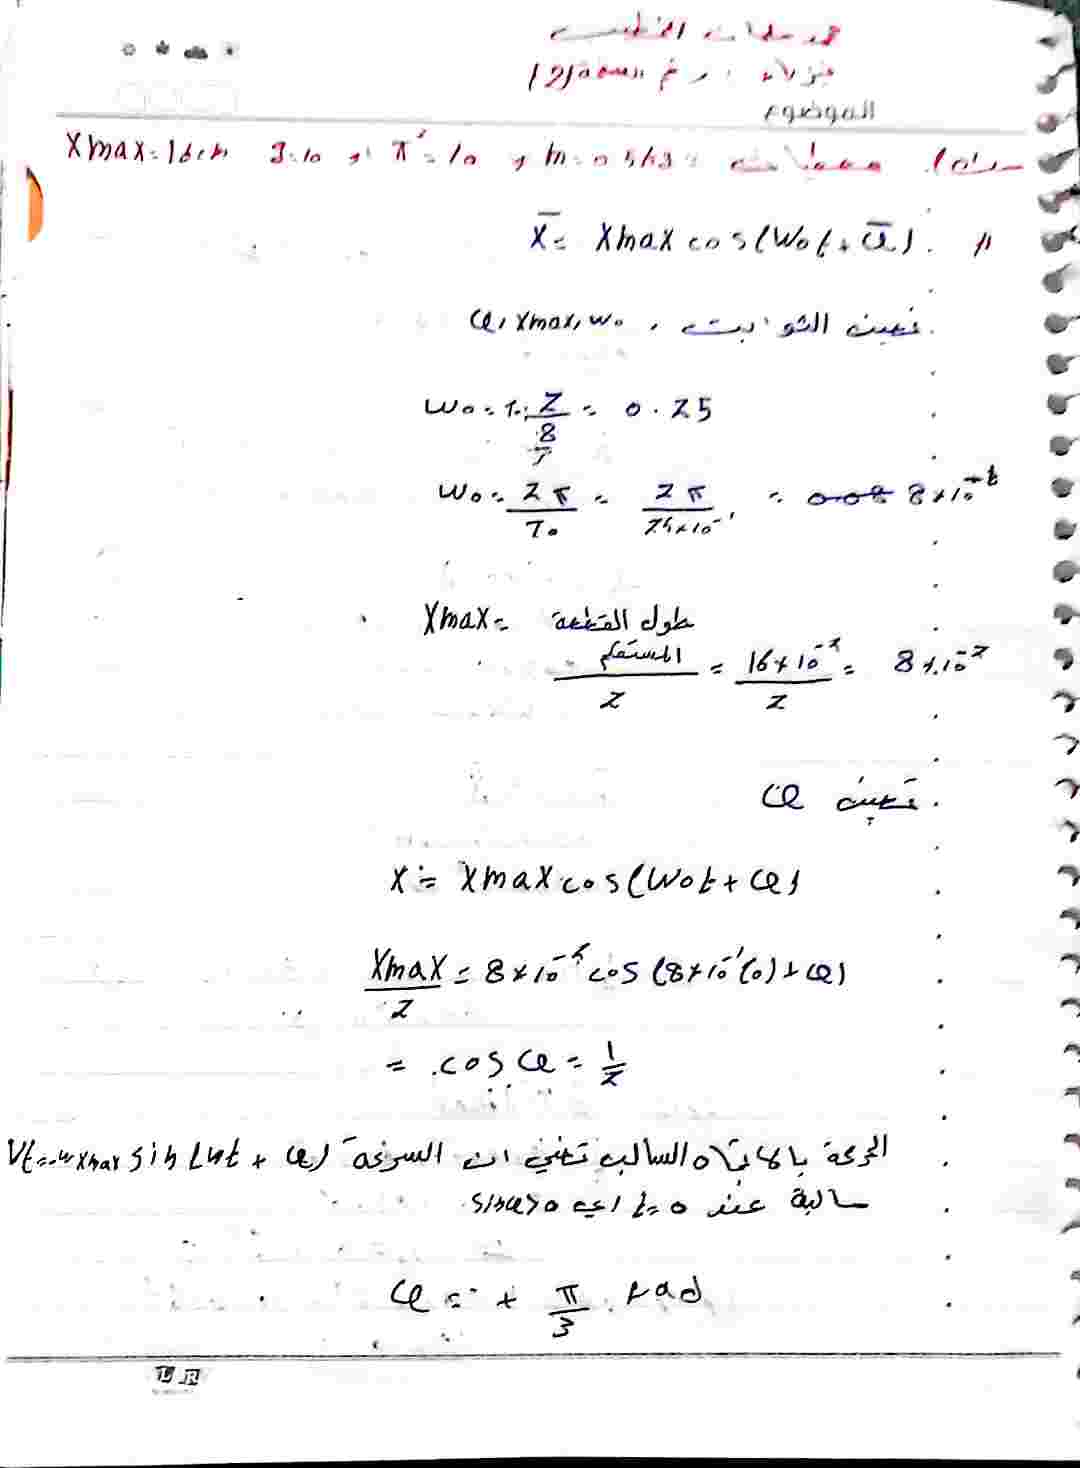 فيزياء رقم المسألة (2)
الموضوع
معطيات m=0.5kg و π²=10 و g=10 Xmax=16cm
X̄= Xmax cos(Wot + φ̄) .1
نعين الثوابت φ, Xmax, wo
Wo = 2/8 = 0.25
Wo = 2π/To = 2π/25×10⁻¹ = 8×10⁻¹
Xmax = طول القطعة المستقيمة/2 = 16×10⁻²/2 = 8×10⁻²
تعيين φ
X = Xmax cos(Wot + φ)
Xmax/2 = 8×10⁻² cos(8×10⁻¹(0) + φ)
= cos φ = 1/2
الحركة بالاتجاه السالب تعني ان السرعة Vt=-wXmax sin(wt + φ)
سالبة عند t=0 اي sinφ>0
φ = + π/3 rad
LR